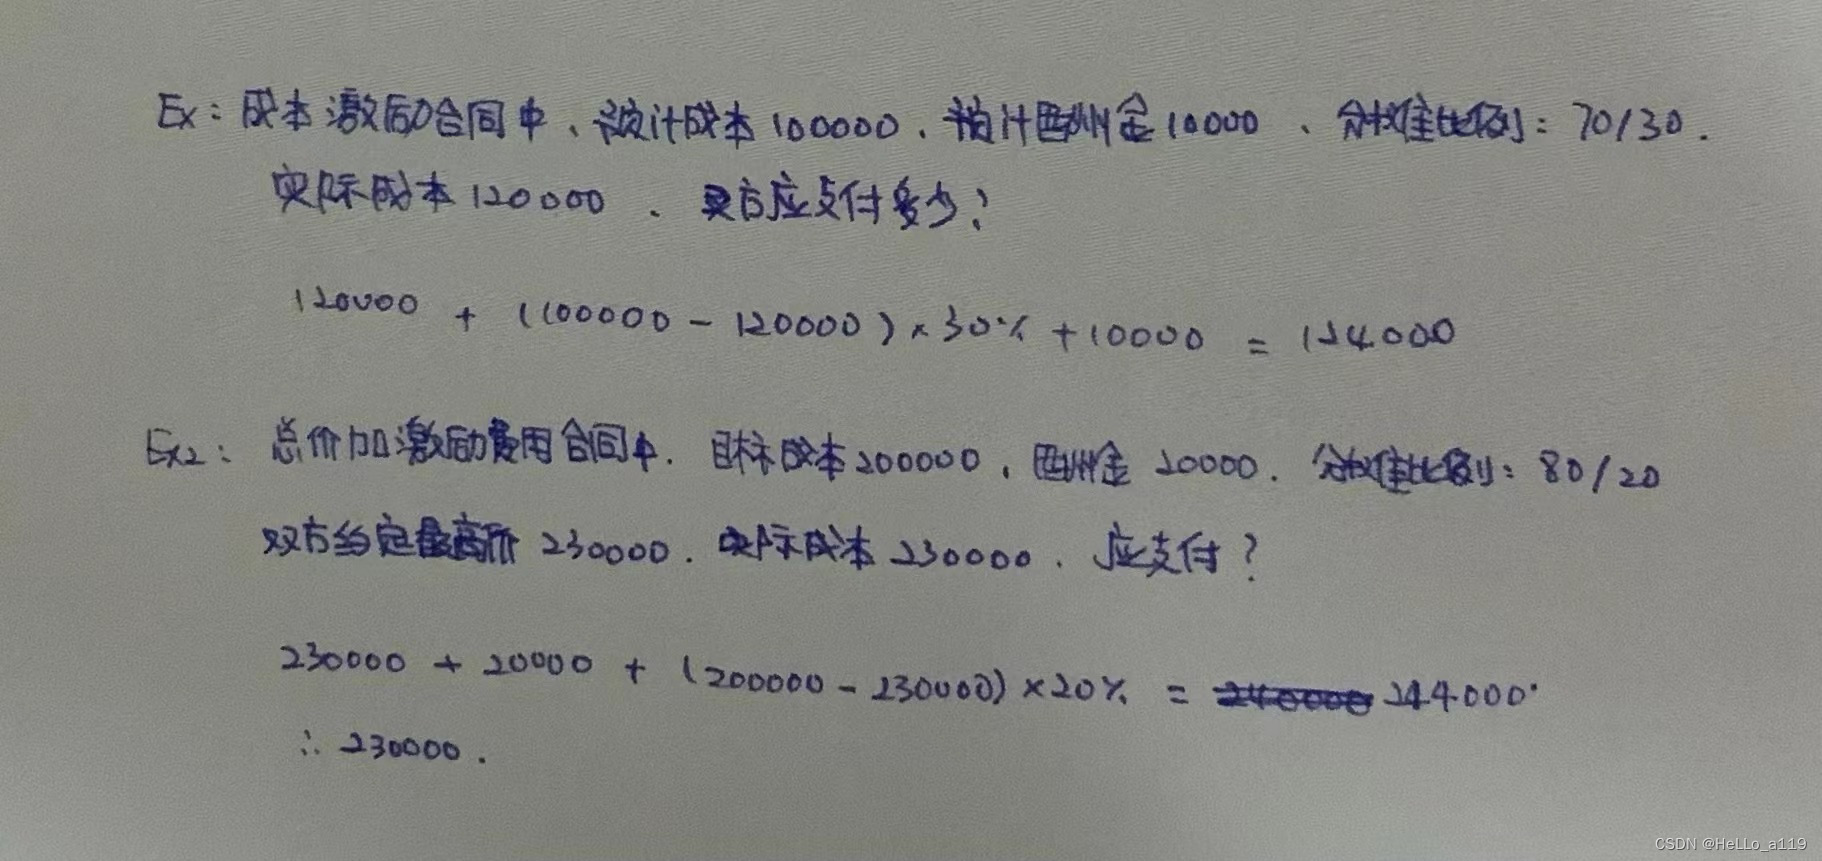 Ex：成本激励合同中、预计成本100000、预计酬金10000、分摊比例：70/30.
实际成本120000、买方应支付多少？
120000 + (100000 - 120000) × 30% + 10000 = 124000
Ex2：总价加激励费用合同中．目标成本200000、酬金20000．分摊比例：80/20
双方约定最高价230000．实际成本230000．应支付？
230000 + 20000 + (200000 - 230000) × 20% = 244000.
∴ 230000.
CSDN @HeLLo_a119